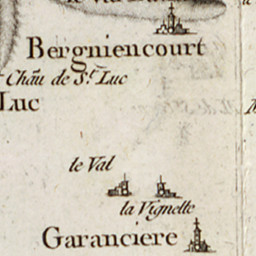 Bergniencourt
Chãu de St. Luc
Luc
le Val
la Vignette
Garanciere